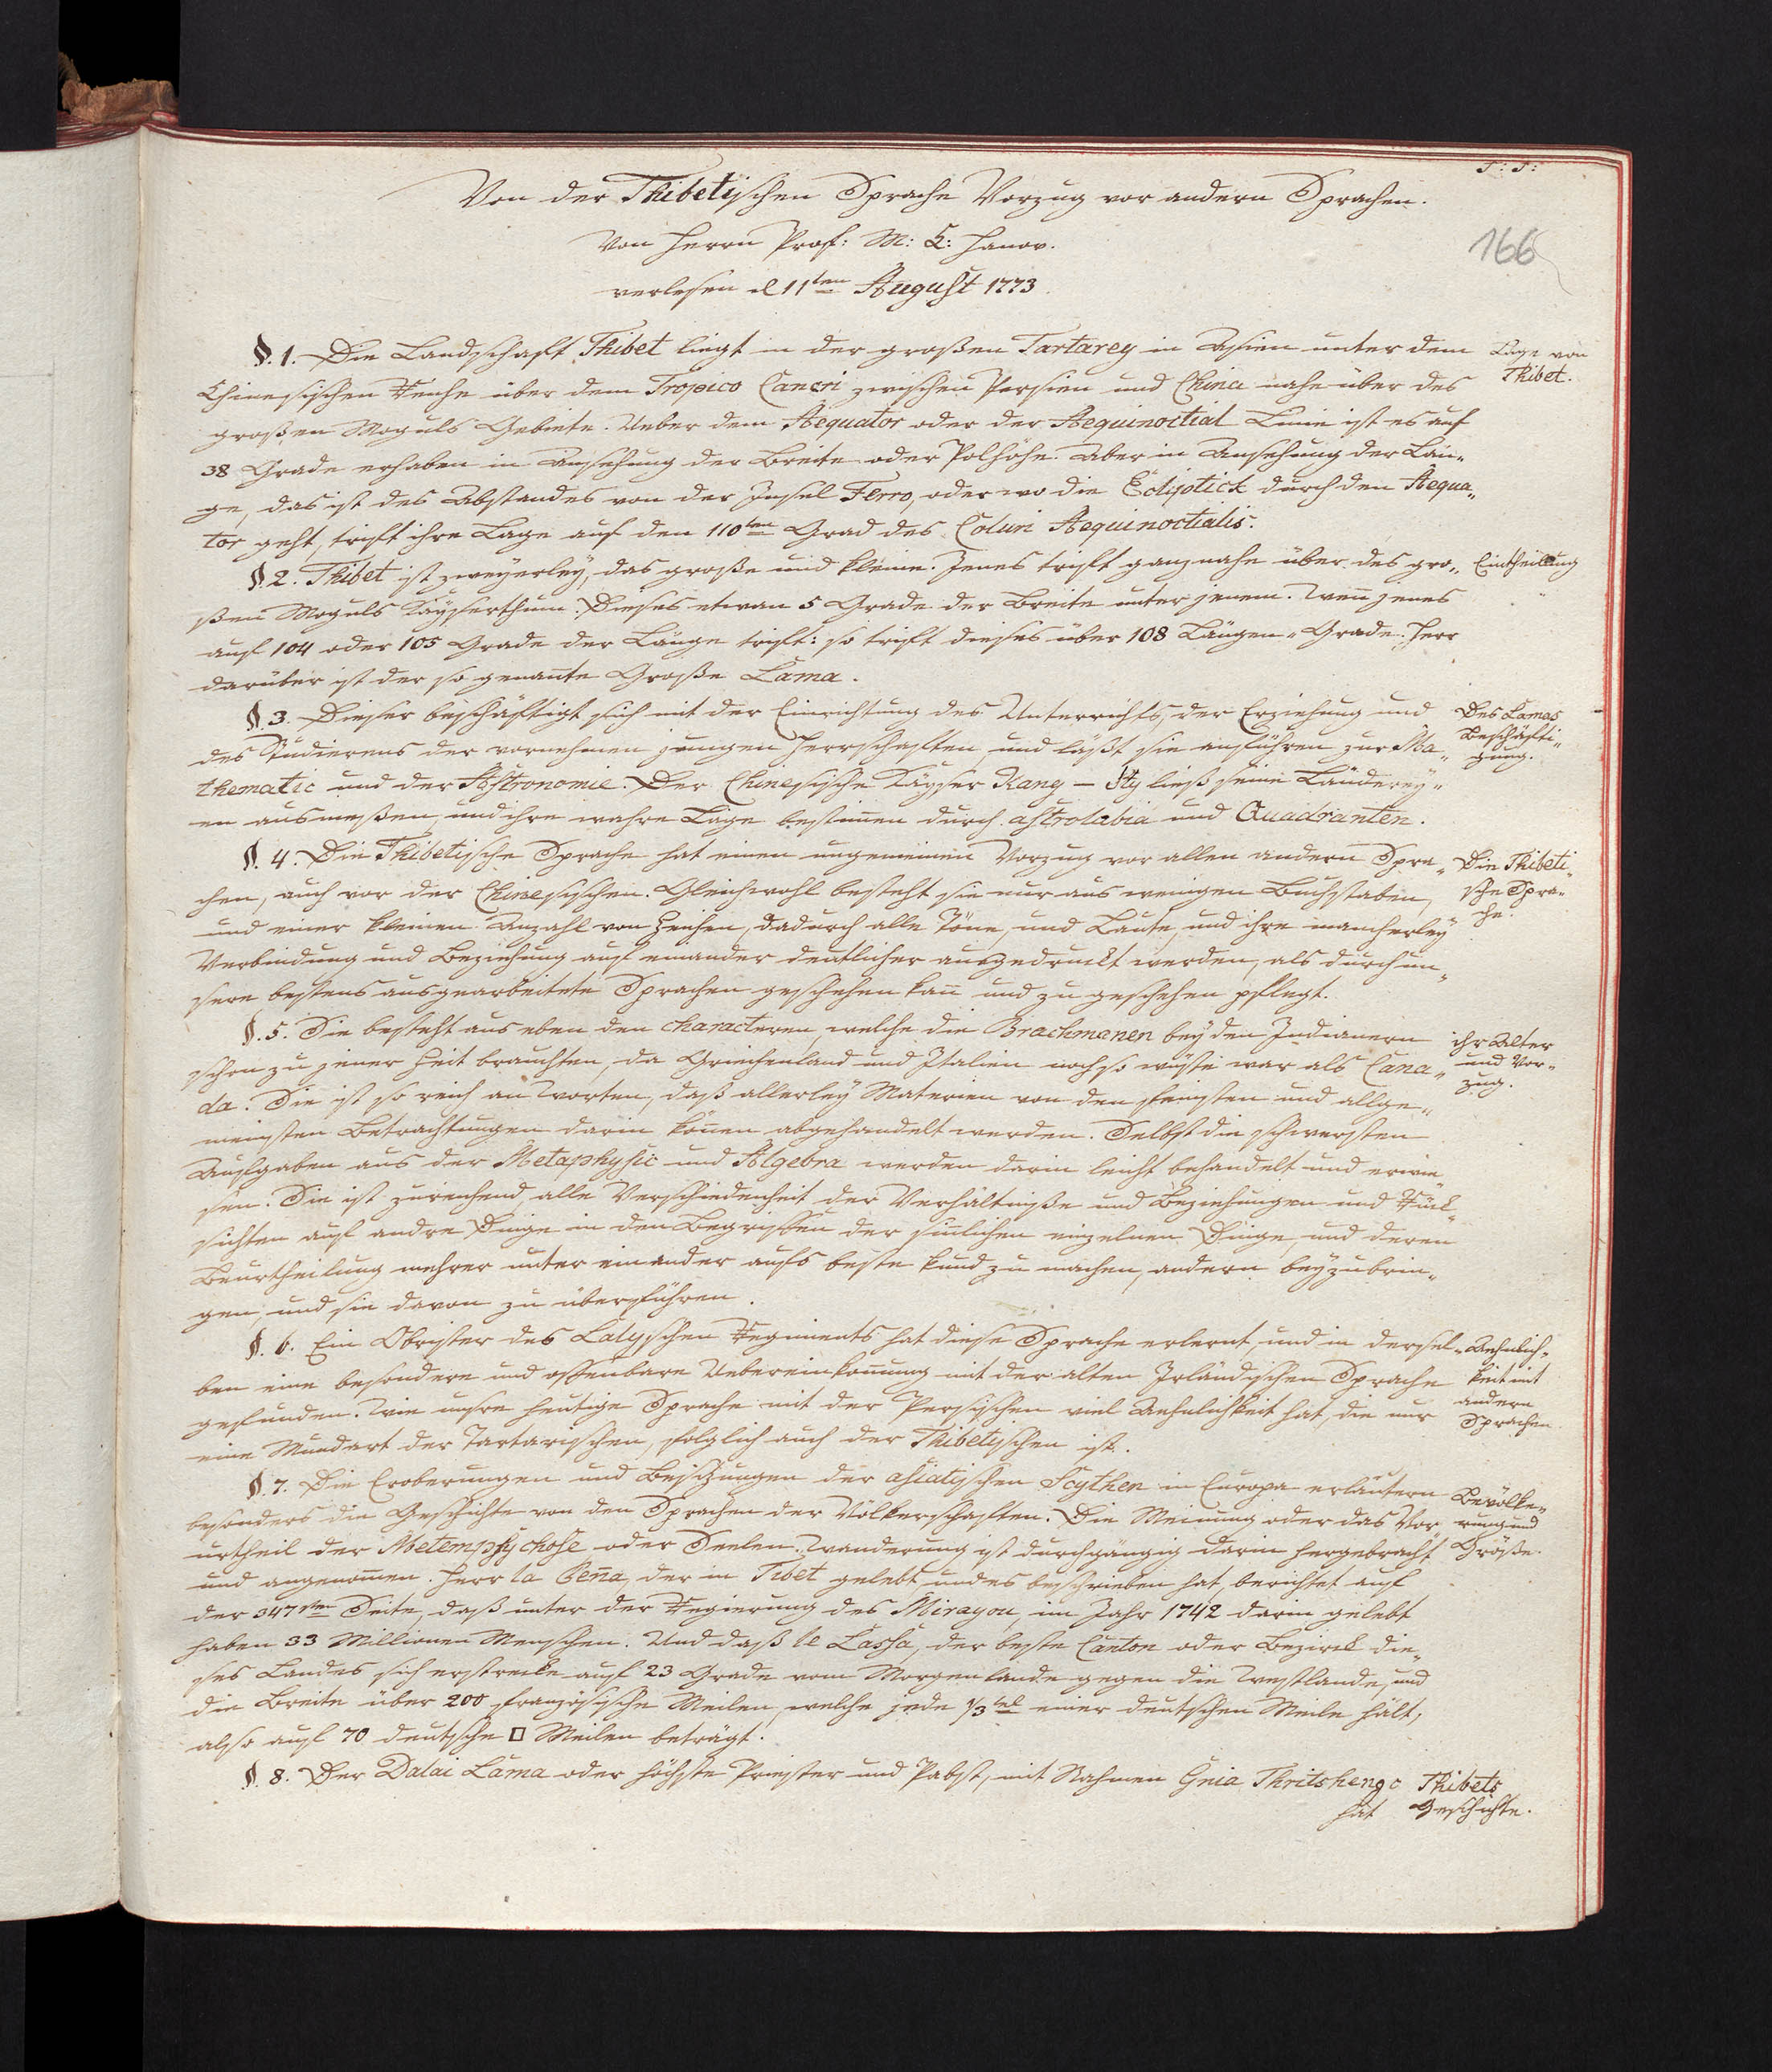 Von der Thibetischen Sprache Vorzug vor andern Sprachen.
166
Von Herrn Prof: M: C: Hanov.
verlesen d 11ten August 1773
§. 1. Die Landschafft Thibet liegt in der großen Tartarey in Asien unter dem
Lage von
Thibet.
Chinesischen Reiche über dem Tropico Cancri zwischen Persien und China nahe über des
großen Moguls Gebiete. Ueber dem Aequator oder der Aequinoctial Linie ist es auf
38 Grade erhaben in Ansehung der Breite oder Polhöhe. Aber in Ansehung der Län„
ge, das ist des Abstandes von der Insel Ferro, oder wo die Eclyptick durch den Aequa„
tor geht, trift ihre Lage auf den 110ten Grad des Coluri Aequinoctialis.
§. 2. Thibet ist zweyerley, das große und kleine. Jenes trift ganz nahe über des gro„
Eintheilung
ßen Moguls Kayserthum. Dieses etwan 5 Grade der Breite unter jenem. Wen̄ jenes
auf 104 oder 105 Grade der Länge trift: so trift dieses über 108 Längen„Grade. Herr
darüber ist der so genan̄te Große Lama.
§. 3. Dieser beschäftigt sich mit der Einrichtung des Unterrichts, der Erziehung und
Des Lamas
Beschäfti„
gung.
des Studierens der vornehmen jungen Herrschaften, und läßt sie anführen zur Ma„
thematic und der Astronomie. Der Chinesische Kayser Kang – Hy ließ seine Länderey„
en ausmeßen, und ihre wahre Lage bestim̄en durch astrolabia und Quadranten.
§. 4. Die Thibetische Sprache hat einen ungemeinen Vorzug vor allen andern Spra„
Die Thibeti„
sche Spra„
che.
chen, auch vor der Chinesischen. Gleichwohl besteht sie nur aus wenigen Buchstaben,
und einer kleinen Anzahl von Zeichen, dadurch alle Töne, und Laute, und ihre mancherley
Verbindung und Beziehung auf einander deutlicher ausgedruckt werden, als durch un„
sere bestens ausgearbeitete Sprachen geschehen kan̄ und zu geschehen pflegt.
§. 5. Sie besteht aus eben den characteren, welche die Brachmanen bey den Indianern
ihr Alter
und Vor„
zug.
schon zu jener Zeit brauchten, da Griechenland und Italien noch so wüste war als Cana„
da. Sie ist so reich an Worten, daß allerley Materien von den feinsten und allge„
meinsten Betrachtungen darin kön̄en abgehandelt werden. Selbst die schwersten
Aufgaben aus der Metaphysic und Algebra werden darin leicht behandelt und erwie„
sen. Sie ist zureichend alle Verschiedenheit der Verhältniße und Beziehungen und Rück„
sichten auf andre Dinge in den Begriffen der sin̄lichen einzelnen Dinge, und deren
Beurtheilung mehrer unter einander aufs beste kund zu machen, andern beyzubrin„
gen, und sie davon zu überführen.
§. 6. Ein Obrister des Lalyschen Regiments hat diese Sprache erlernt, und in dersel„
Aehnlich„
keit mit
andern
Sprachen
ben eine besondere und offenbare Uebereinkom̄ung mit der alten Irländischen Sprache
gefunden. Wie unsre heutige Sprache mit der Persischen viel Aehnlichkeit hat, die nur
eine Mundart der Tartarischen, folglich auch der Thibetischen ist.
§. 7. Die Eroberungen und Besitzungen der asiatischen Scythen in Europa erläutern
Bevölke„
rung und
Größe.
besonders die Geschichte von den Sprachen der Völkerschaften. Die Meinung oder das Vor„
urtheil der Metempsychose oder Seelen„Wanderung ist durchgängig darin hergebracht
und angenom̄en. Herr la Pen̄a, der in Tibet gelebt und es beschrieben hat, berichtet auf
der 347sten Seite, daß unter der Regierung des Mirayou, im Jahr 1742 darin gelebt
haben 33 Millionen Menschen. Und daß le Lassa, der beste Canton oder Bezirck die„
ses Landes sich erstrecke auf 23 Grade vom Morgenlande gegen die Westlande, und
die Breite über 200 französische Meilen, welche jede 1/3tel einer deutschen Meile hält,
also auf 70 deutsche □ Meilen beträgt.
§. 8. Der Dalai Lama oder höchste Priester und Pabst, mit Nahmen Gnia Thritshengc
Thibets
Geschichte.
hat